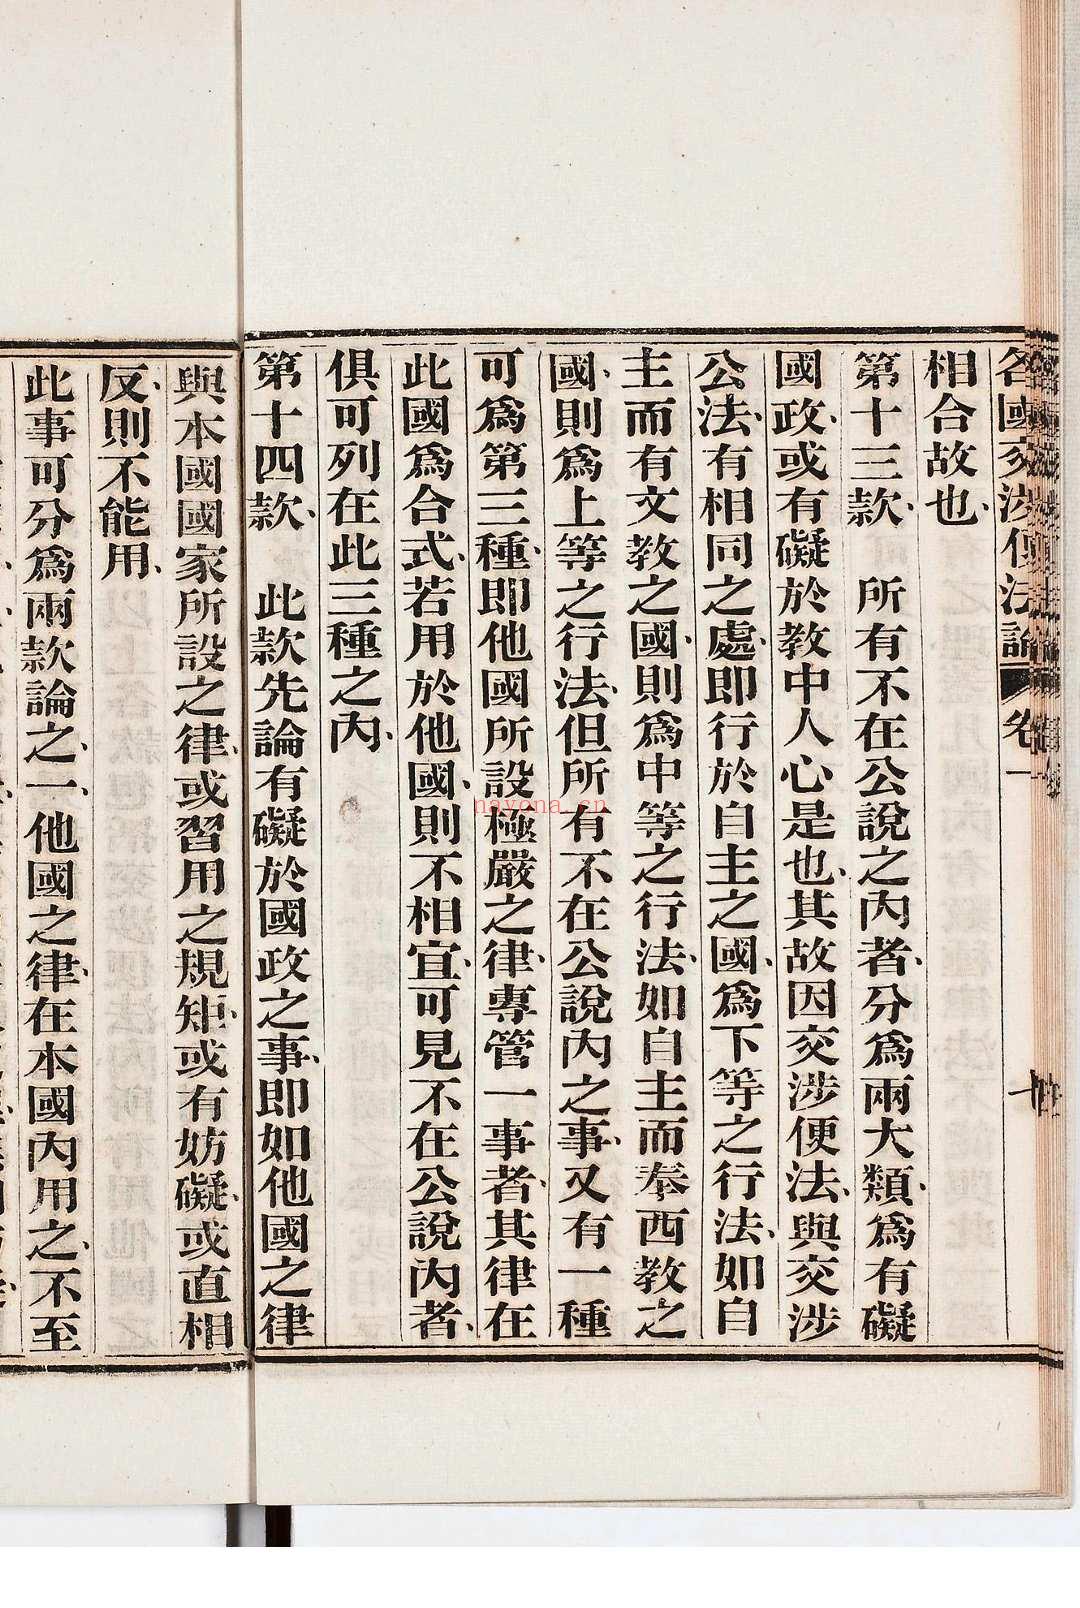 各國交涉便法論 卷一
相合故也、
第十三款、 所有不在公說之內者、分爲兩大類、爲有礙
國政、或有礙於教中人心是也、其故因交涉便法、與交涉
公法、有相同之處、即行於自主之國、爲下等之行法、如自
主而有文教之國、則爲中等之行法、如自主而奉西教之
國、則爲上等之行法、但所有不在公說內之事、又有一種
可爲第三種、即他國所設極嚴之律、專管一事者、其律在
此國爲合式、若用於他國、則不相宜、可見不在公說內者、
俱可列在此三種之內、
第十四款、 此款先論有礙於國政之事、即如他國之律
與本國國家所設之律、或習用之規矩、或有妨礙、或直相
反、則不能用、
此事可分爲兩款論之、一、他國之律、在本國內用之、不至
nayona.cn